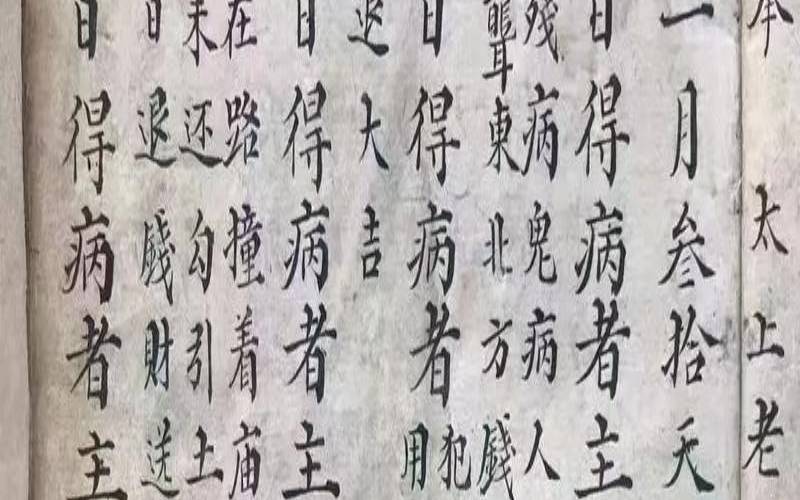 太上老
一月叁拾天
日得病者主
残病鬼病人
聾東北方錢
犯
日得病者用
大吉
日得病者主
在路撞着庙
未还勾引土
日退錢財送
日得病者主